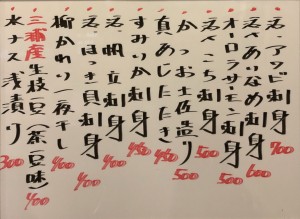 活〆アワビ刺身 700
活〆あいなめ刺身 600
オーロラサーモン刺身 500
活〆こち刺身 500
かつお土佐造り 500
真あじたたき 450
すみいか刺身 450
活〆帆立刺身 400
活〆ほっき貝刺身 400
柳かれい一夜干し 400
三浦産生枝豆(茶豆味) 400
水ナス浅漬り 300